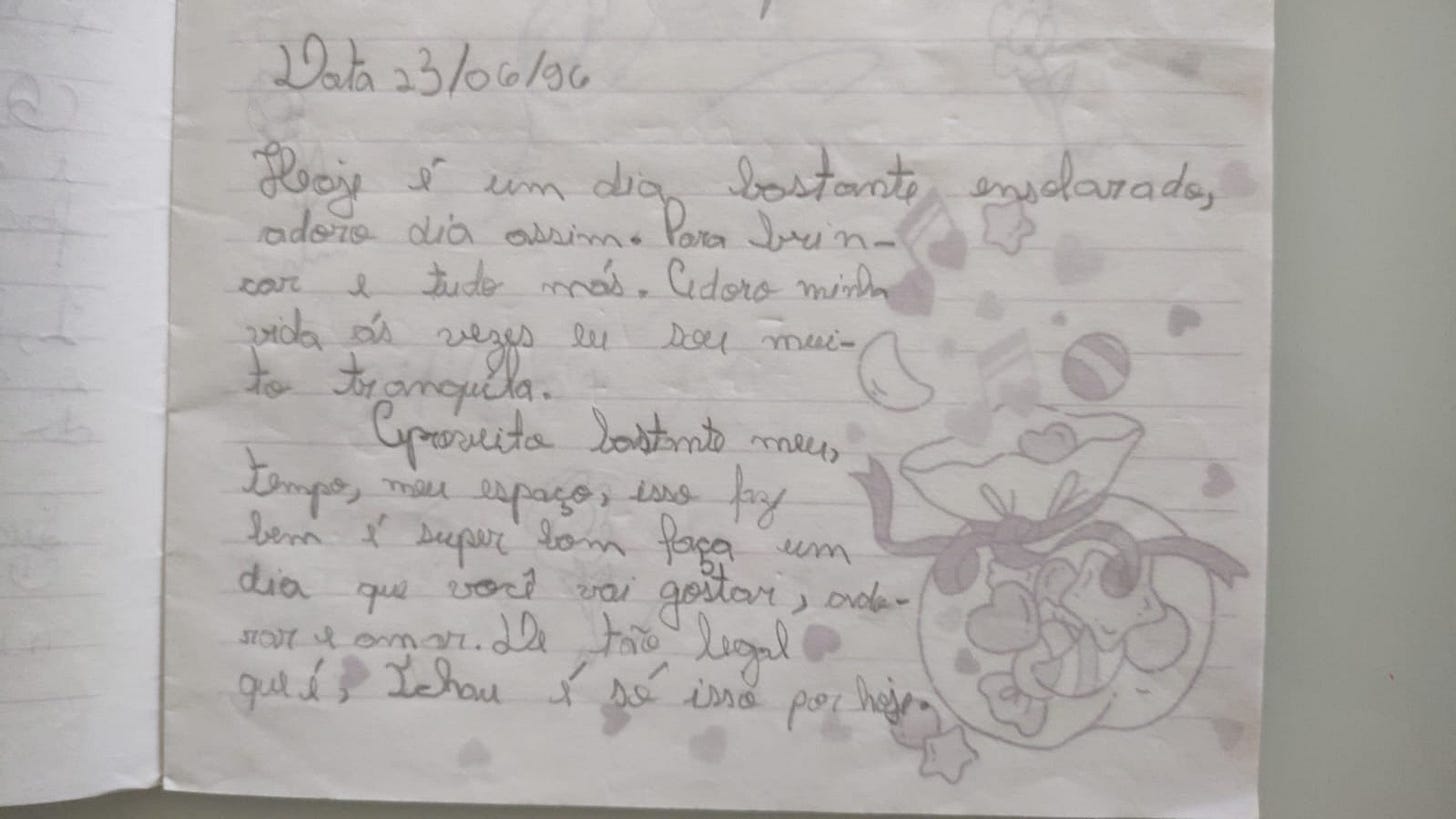 Data 23/06/96
Hoje é um dia bastante ensolarado,
adoro dia assim. Para brin-
car e tudo más. Adoro minha
vida ás vezes eu sou mui-
to tranquila.
Aproveito bastante meu,
tempo, meu espaço, isso faz
bem é super bom faça um
dia que você vai gostar, ado-
rar e amar. De tão legal
que é, Tchau é só isso por hoje.